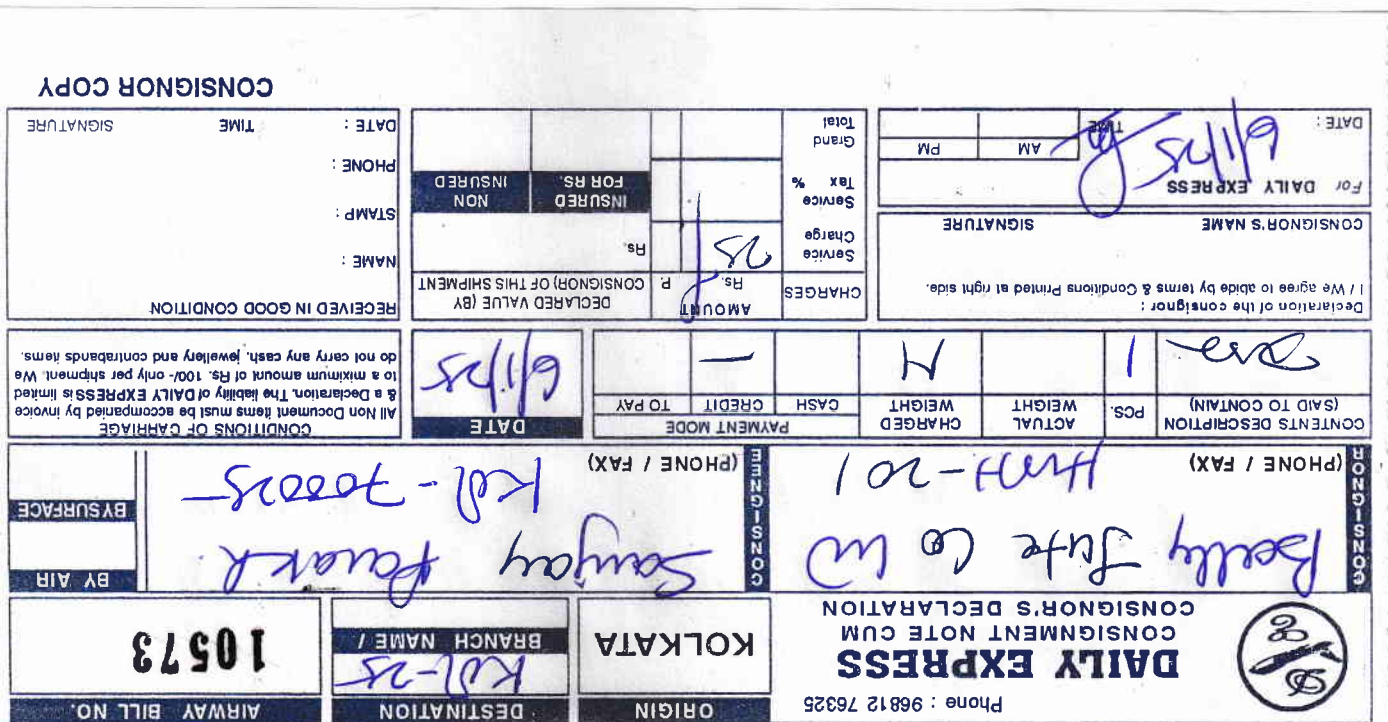 Phone : 96812 76325
DAILY EXPRESS
CONSIGNMENT NOTE CUM
CONSIGNOR'S DECLARATION
ORIGIN
KOLKATA
DESTINATION
Kol-25
BRANCH NAME /
AIRWAY BILL NO.
10573
CONSIGNOR
Bally Jute Co
HWH-201
(PHONE / FAX)
CONSIGNEE
Sanjay Parakh
Kol-700025
(PHONE / FAX)
BY AIR
BYSURFACE
CONTENTS DESCRIPTION
(SAID TO CONTAIN)
PCS.
1
ACTUAL
WEIGHT
CHARGED
WEIGHT
PAYMENT MODE
CASH
CREDIT
—
TO PAY
DATE
6/1/25
CONDITIONS OF CARRIAGE
All Non Document items must be accompanied by invoice
& a Declaration. The liability of DAILY EXPRESS is limited
to a miximum amount of Rs. 100/- only per shipment. We
do not carry any cash, jewellery and contrabands items.
Declaration of the consignor :
I / We agree to abide by terms & Conditions Printed at right side.
CONSIGNOR'S NAME
SIGNATURE
For DAILY EXPRESS
6/1/25
DATE :
TIME
AM
PM
CHARGES
AMOUNT
Rs.
P.
Service
Charge
25
Service
Tax %
Grand
Total
DECLARED VALUE (BY
CONSIGNOR) OF THIS SHIPMENT
Rs.
INSURED
FOR RS.
NON
INSURED
RECEIVED IN GOOD CONDITION
NAME :
STAMP :
PHONE :
DATE :
TIME
SIGNATURE
CONSIGNOR COPY